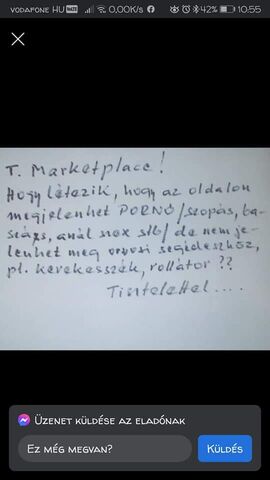 VODAFONE HU 0,00K/S 42% 10:55
T. Marketplace!
Hogy létezik, hogy az oldalon
megjelenhet PORNÓ/szopás, ba-
szás, anál szex stb/ de nem je-
lenhet meg orvosi segédeszköz,
pl. kerekesszék, rollátor ??
Tisztelettel....
ÜZENET KÜLDÉSE AZ ELADÓNAK
EZ MÉG MEGVAN?
KÜLDÉS